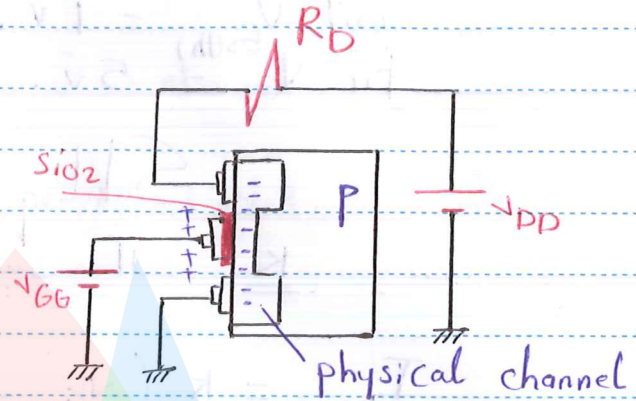 RD
SiO2
P
VDD
VGG
physical channel